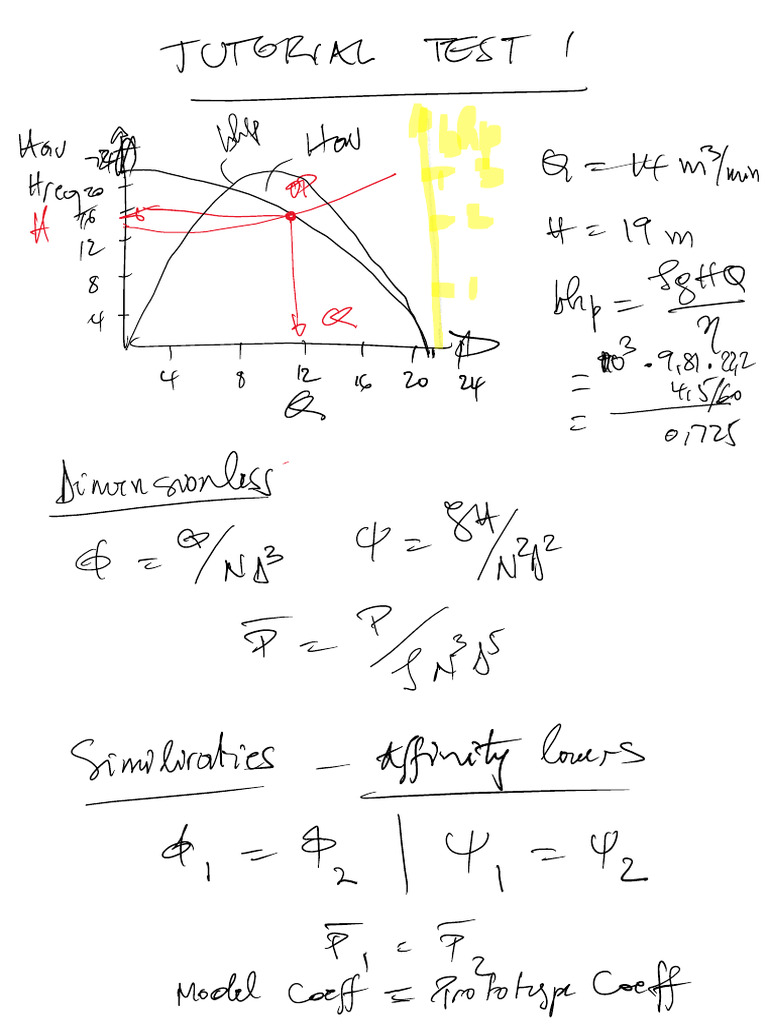 TUTORIAL TEST 1
Hav
Hreq
H
20
16
12
8
4
bhp
Hav
Q
4 8 12 16 20 24
Q
bhp
Q = 14 m³/min
H = 19 m
bhp = ρgHQ / η
= 10³ · 9,81 · 22,2
4,5/60
= 0,725
Dimensionless
Φ = Q/ND³ Ψ = gH/N²D²
P̅ = P/ρN³D⁵
Similiraties – Affinity lowers
Φ₁ = Φ₂ | Ψ₁ = Ψ₂
P̅₁ = P̅₂
Model Coeff = Prototype Coeff